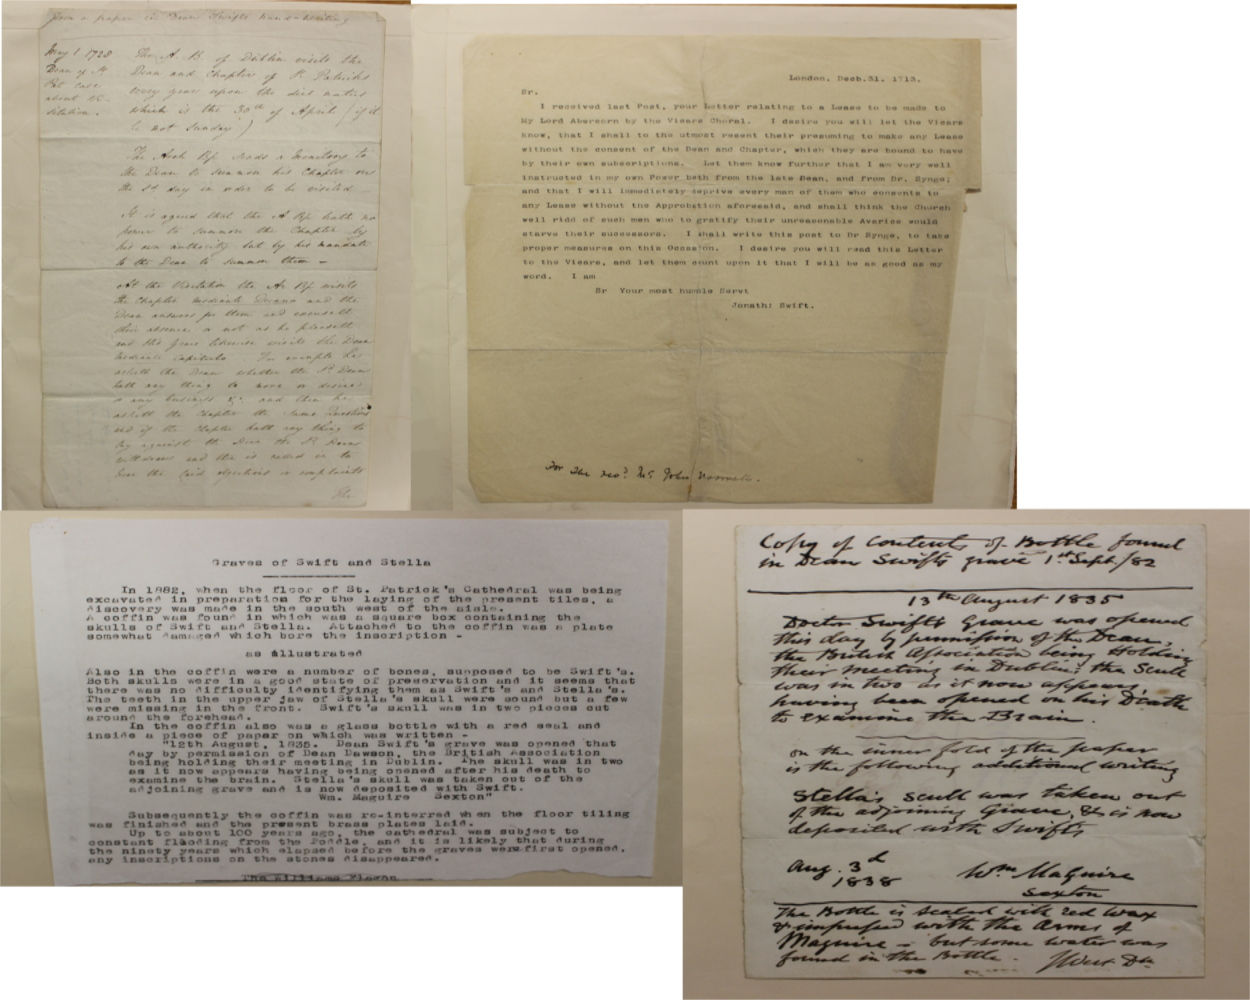 from a paper in Dean Swifts hand-writing
May 1 1728
Dean of St
Pat case
about
The A. B. of Dublin visits the
Dean and Chapter of St. Patricks
every year upon the
which is the 30th of April (if it
be not Sunday)
The Arch Bp. sends a Monitory to
the Dean to summon his Chapter on
the sd day in order to be visited
It is agreed that the A Bp hath no
power to summon the Chapter by
his own authority but by his mandate
to the Dean to summon them -
At the Visitation the Ar Bp visits
the Chapter mediante Decano and the
Dean answers for them and excuseth
their absence or not as he pleaseth
and his Grace likewise visits the Dean
mediante Capitulo. For example he
asketh the Dean whether the Sd Dean
hath any thing to move or desire
or any business &c. and then he
asketh the Chapter the same Questions
and if the Chapter hath any thing to
say against the Dean the Sd Dean
withdraws and he is called in to
hear the said objections or complaints
The
London, Decb.31. 1713.
Sr.
I received last Post, your Letter relating to a Lease to be made to
My Lord Abercorn by the Vicars Choral. I desire you will let the Vicars
know, that I shall to the utmost resent their presuming to make any Lease
without the consent of the Dean and Chapter, which they are bound to have
by their own subscriptions. Let them know further that I am very well
instructed in my own Power both from the late Dean, and from Dr. Synge;
and that I will immediately deprive every man of them who consents to
any Lease without the Approbation aforesaid, and shall think the Church
well ridd of such men who to gratify their unreasonable Avarice would
starve their successors. I shall write this post to Dr Synge, to take
proper measures on this Occasion. I desire you will read this Letter
to the Vicars, and let them count upon it that I will be as good as my
word. I am
Sr Your most humble Servt
Jonath: Swift.
For the revd. Mr John
Graves of Swift and Stella
In 1882, when the floor of St. Patrick's Cathedral was being
excavated in preparation for the laying of the present tiles, a
discovery was made in the south west of the aisle.
A coffin was found in which was a square box containing the
skulls of Swift and Stella. Attached to the coffin was a plate
somewhat damaged which bore the inscription -
as illustrated
Also in the coffin were a number of bones, supposed to be Swift's.
Both skulls were in a good state of preservation and it seems that
there was no difficulty identifying them as Swift's and Stella's.
The teeth in the upper jaw of Stella's skull were sound but a few
were missing in the front. Swift's skull was in two pieces cut
around the forehead.
In the coffin also was a glass bottle with a red seal and
inside a piece of paper on which was written -
"12th August, 1835. Dean Swift's grave was opened that
day by permission of Dean Dawson, the British Association
being holding their meeting in Dublin. The skull was in two
as it now appears having being opened after his death to
examine the brain. Stella's skull was taken out of the
adjoining grave and is now deposited with Swift.
Wm. Maguire Sexton"
Subsequently the coffin was re-interred when the floor tiling
was finished and the present brass plates laid.
Up to about 100 years ago, the cathedral was subject to
constant flooding from the Poddle, and it is likely that during
the ninety years which elapsed before the graves were first opened,
any inscriptions on the stones disappeared.
The Williams
Copy of contents of Bottle found
in Dean Swifts grave 1st Sept./82
13th August 1835
Doctor Swift's Grave was opened
this day by permission of the Dean,
the British Association being Holding
their meeting in Dublin; the Scull
was in two as it now appears,
having been opened on his Death
to examine the Brain.
on the inner fold of the paper
is the following additional writing
Stella's scull was taken out
of the adjoining Grave, & is now
deposited with Swifts
Aug. 3d
1838
Wm Maguire
Sexton
The Bottle is sealed with red wax
& impressed with the Arms of
Maguire - but some water was
found in the Bottle.